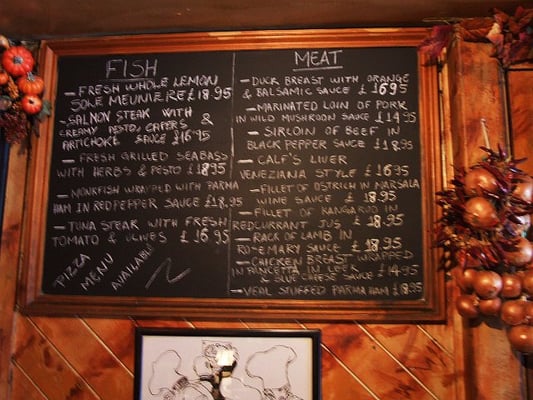 FISH
- FRESH WHOLE LEMON
SOLE MEUNIERE £18.95
- SALMON STEAK WITH
CREAMY PESTO, CAPERS &
ARTICHOKE SAUCE £16.95
- FRESH GRILLED SEABASS
WITH HERBS & PESTO £18.95
- MONKFISH WRAPPED WITH PARMA
HAM IN RED PEPPER SAUCE £18.95
- TUNA STEAK WITH FRESH
TOMATO & OLIVES £16.95
PIZZA
MENU
AVAILABLE
MEAT
- DUCK BREAST WITH ORANGE
& BALSAMIC SAUCE £16.95
- MARINATED LOIN OF PORK
IN WILD MUSHROOM SAUCE £14.95
- SIRLOIN OF BEEF IN
BLACK PEPPER SAUCE £18.95
- CALF'S LIVER
VENEZIANA STYLE £16.95
- FILLET OF OSTRICH IN MARSALA
WINE SAUCE £18.95
- FILLET OF KANGAROO IN
REDCURRANT JUS £18.95
- RACK OF LAMB IN
ROSEMARY SAUCE £18.95
- CHICKEN BREAST WRAPPED
IN PANCETTA IN LEEK
& BLUE CHEESE SAUCE £14.95
- VEAL STUFFED PARMA HAM £18.95